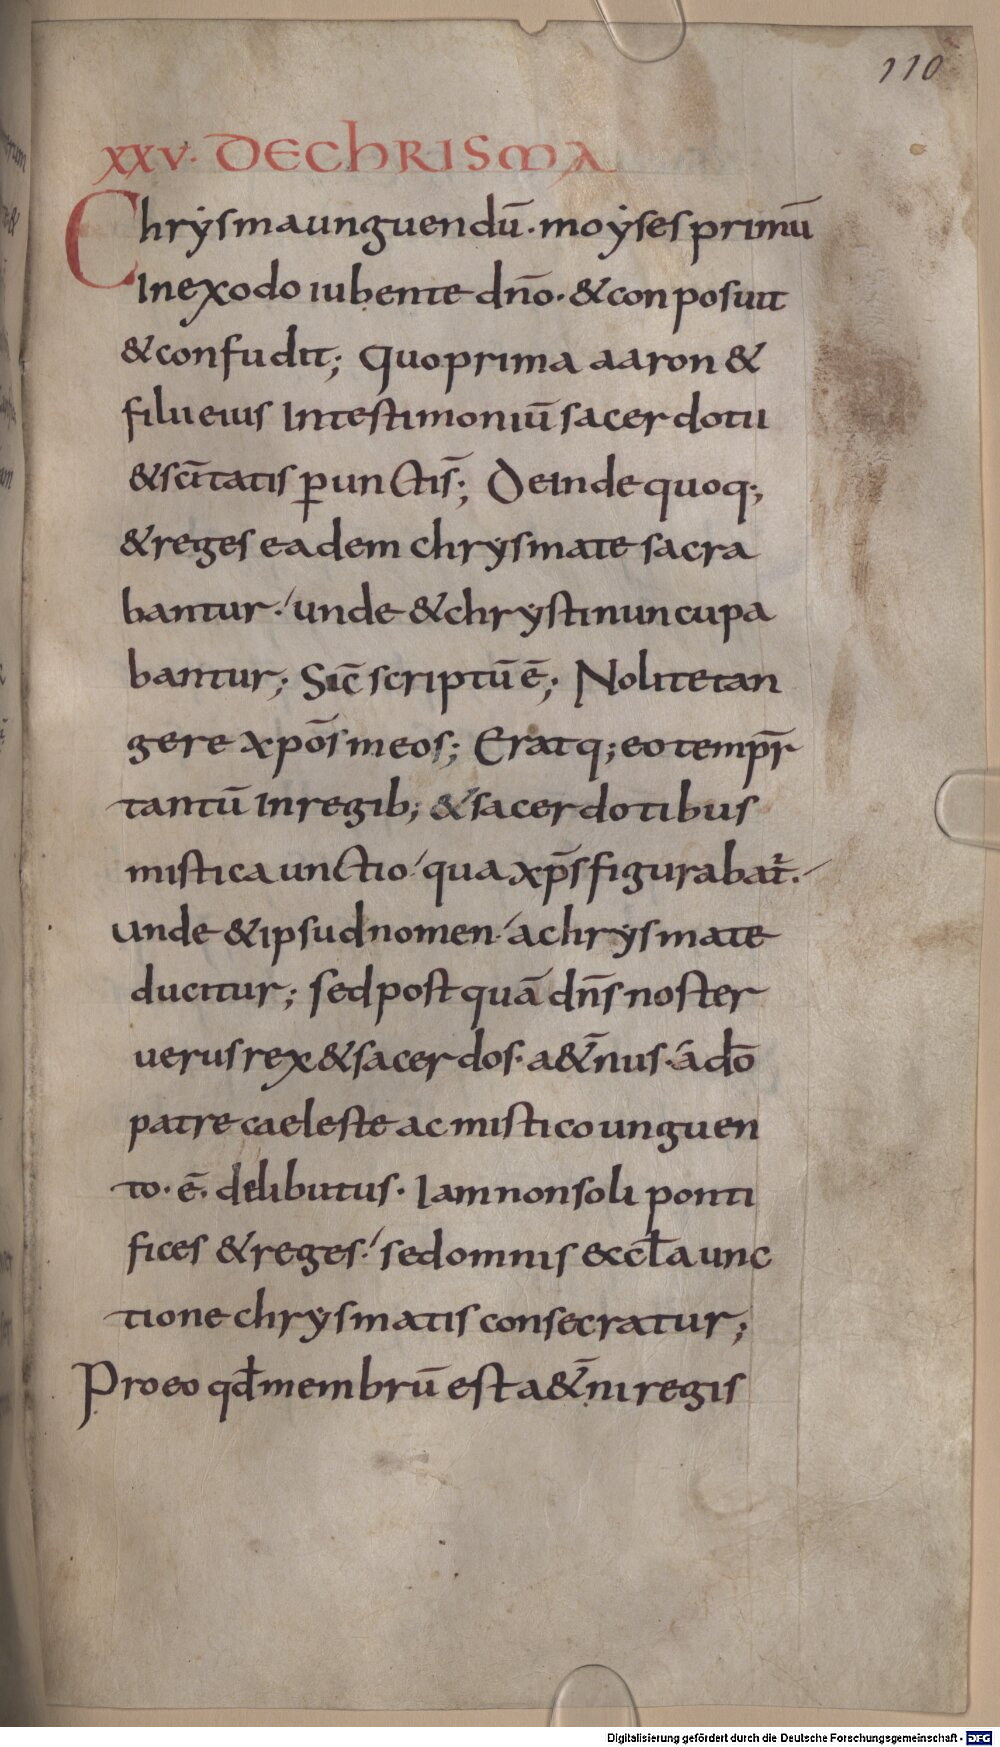 110
XXV. DE CHRISMA
Chrẏsma unguendū. moẏses primū
In exodo iubente dn̄o. & conposuit
& confudit; Quo prima aaron &
filii eius In testimoniū sacerdotii
& sc̄itatis perunctis̄; Deinde quoq;
& reges eadem chrysmate sacra
bantur. unde & chrysti nuncupa
bantur; Sic̄ scriptū ē; Nolite tan
gere xpōs meos; Erat q; eo tempr̄
tantū In regib; & sacerdotibus
mistica unctio qua xp̄s figurabat̄.
Unde & ipsud nomen a chrysmate
ducitur; sed postquā dn̄s noster
uerus rex & sacerdos. a&̄nus. a dō
patre caeleste ac mistico unguen
to. ē. delibutus. Iam non soli ponti
fices & reges. sed omnis eccła unc
tione chrysmatis consecratur;
Pro eo qđ membrū est a&̄ni regis
Digitalisierung gefördert durch die Deutsche Forschungsgemeinschaft - DFG